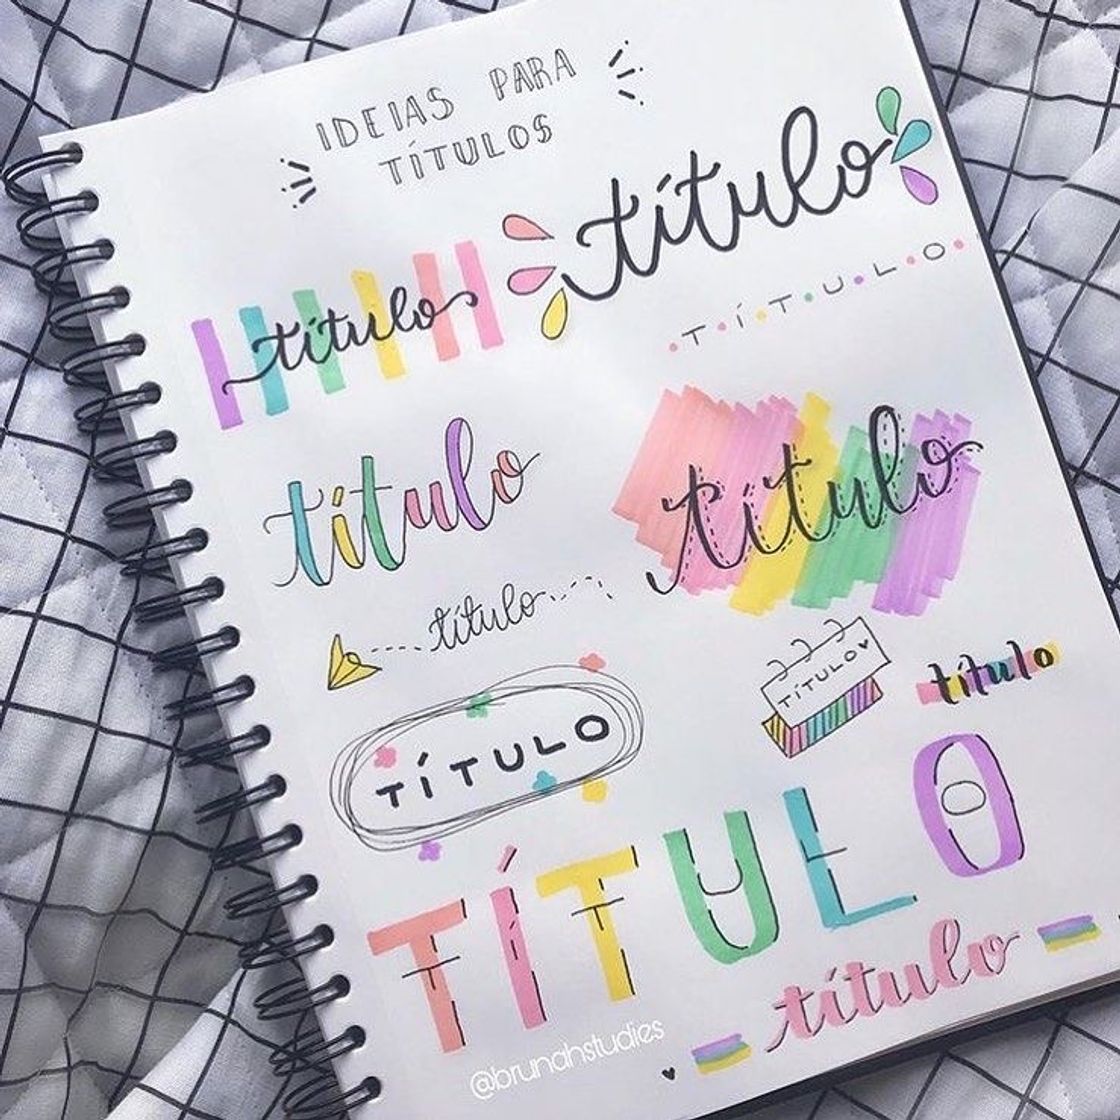 IDEIAS PARA
TÍTULOS
título
título
T Í T U L O
título
título
título
TÍTULO
título
TÍTULO
TÍTULO
título
@brunahstudies